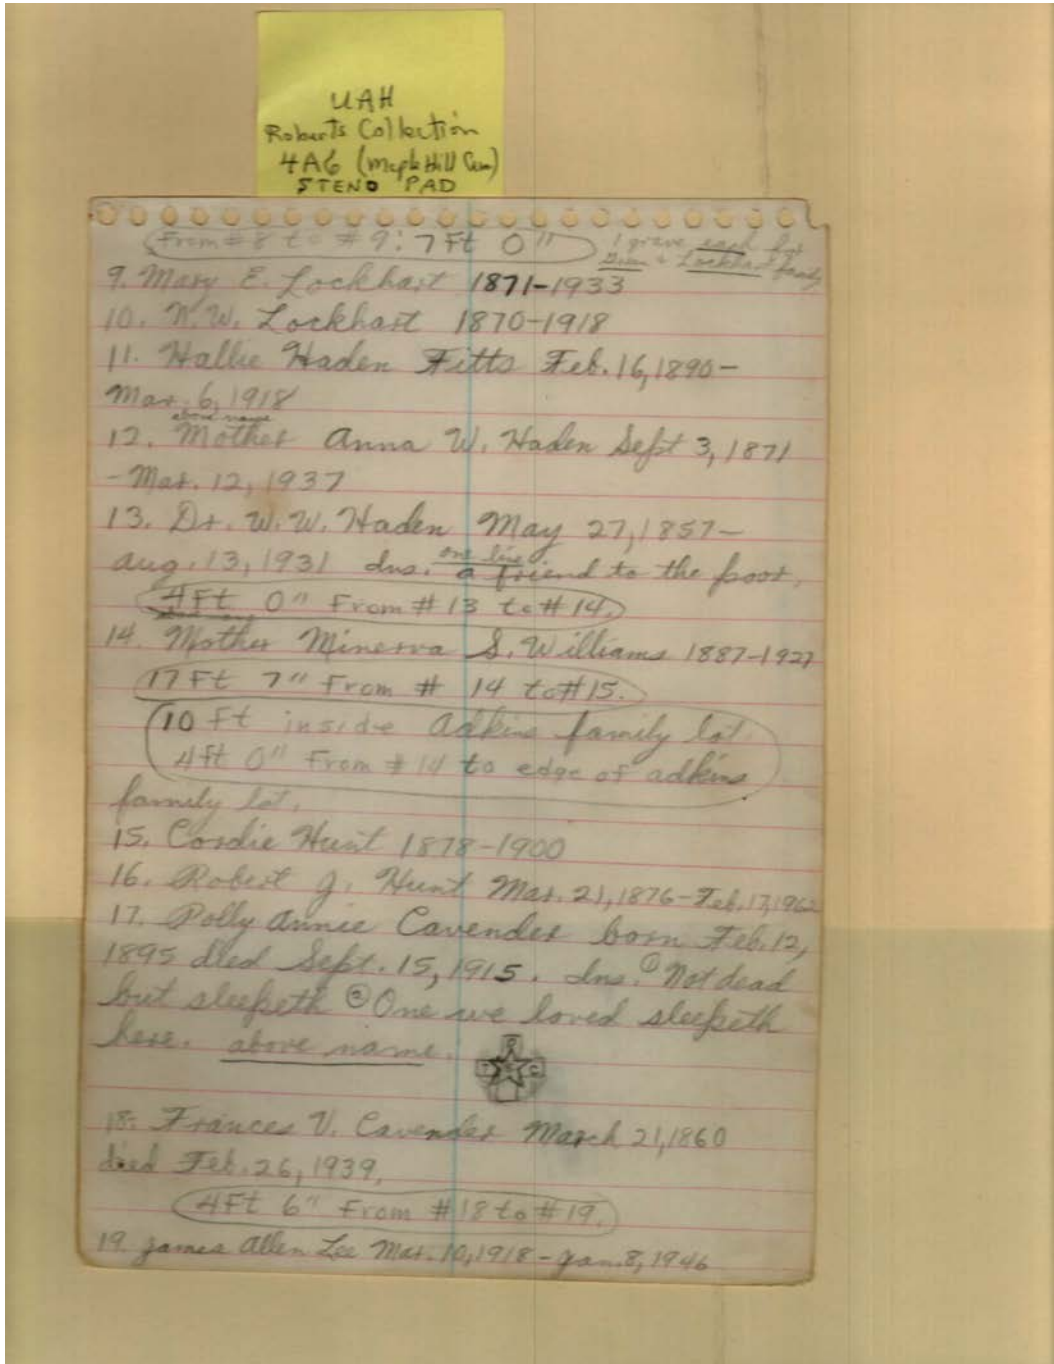 UAH
Roberts Collection
4A6 (Maple Hill Cem)
STENO PAD
From #8 to #9: 7 Ft 0"
1 grave each for
& Lockhart family
9. Mary E. Lockhart 1871-1933
10. W.W. Lockhart 1870-1918
11. Hallie Haden Fitts Feb. 16, 1890-
Mar. 6, 1918
above name
12. Mother Anna W. Haden Sept 3, 1871
- Mar. 12, 1937
13. Dr. W. W. Haden May 27, 1857-
one line
Aug. 13, 1931 Ins. a friend to the poor.
4Ft 0" From #13 to #14.
14. Mother Minerva S. Williams 1887-1927
17 Ft 7" From # 14 to #15.
10 Ft inside Adkins family lot.
4 ft 0" From #14 to edge of adkins
family lot.
15. Cordie Hunt 1878-1900
16. Robert J. Hunt Mar. 21, 1876-Feb. 17, 1962
17. Polly Annie Cavender born Feb. 12,
1895 died Sept. 15, 1915. Ins. ① Not dead
but sleepeth ② One we loved sleepeth
here. above name.
18. Frances V. Cavender March 21, 1860
died Feb. 26, 1939,
4Ft 6" From #18 to #19.
19. James Allen Lee Mar. 10, 1918 - Jan. 8, 1946